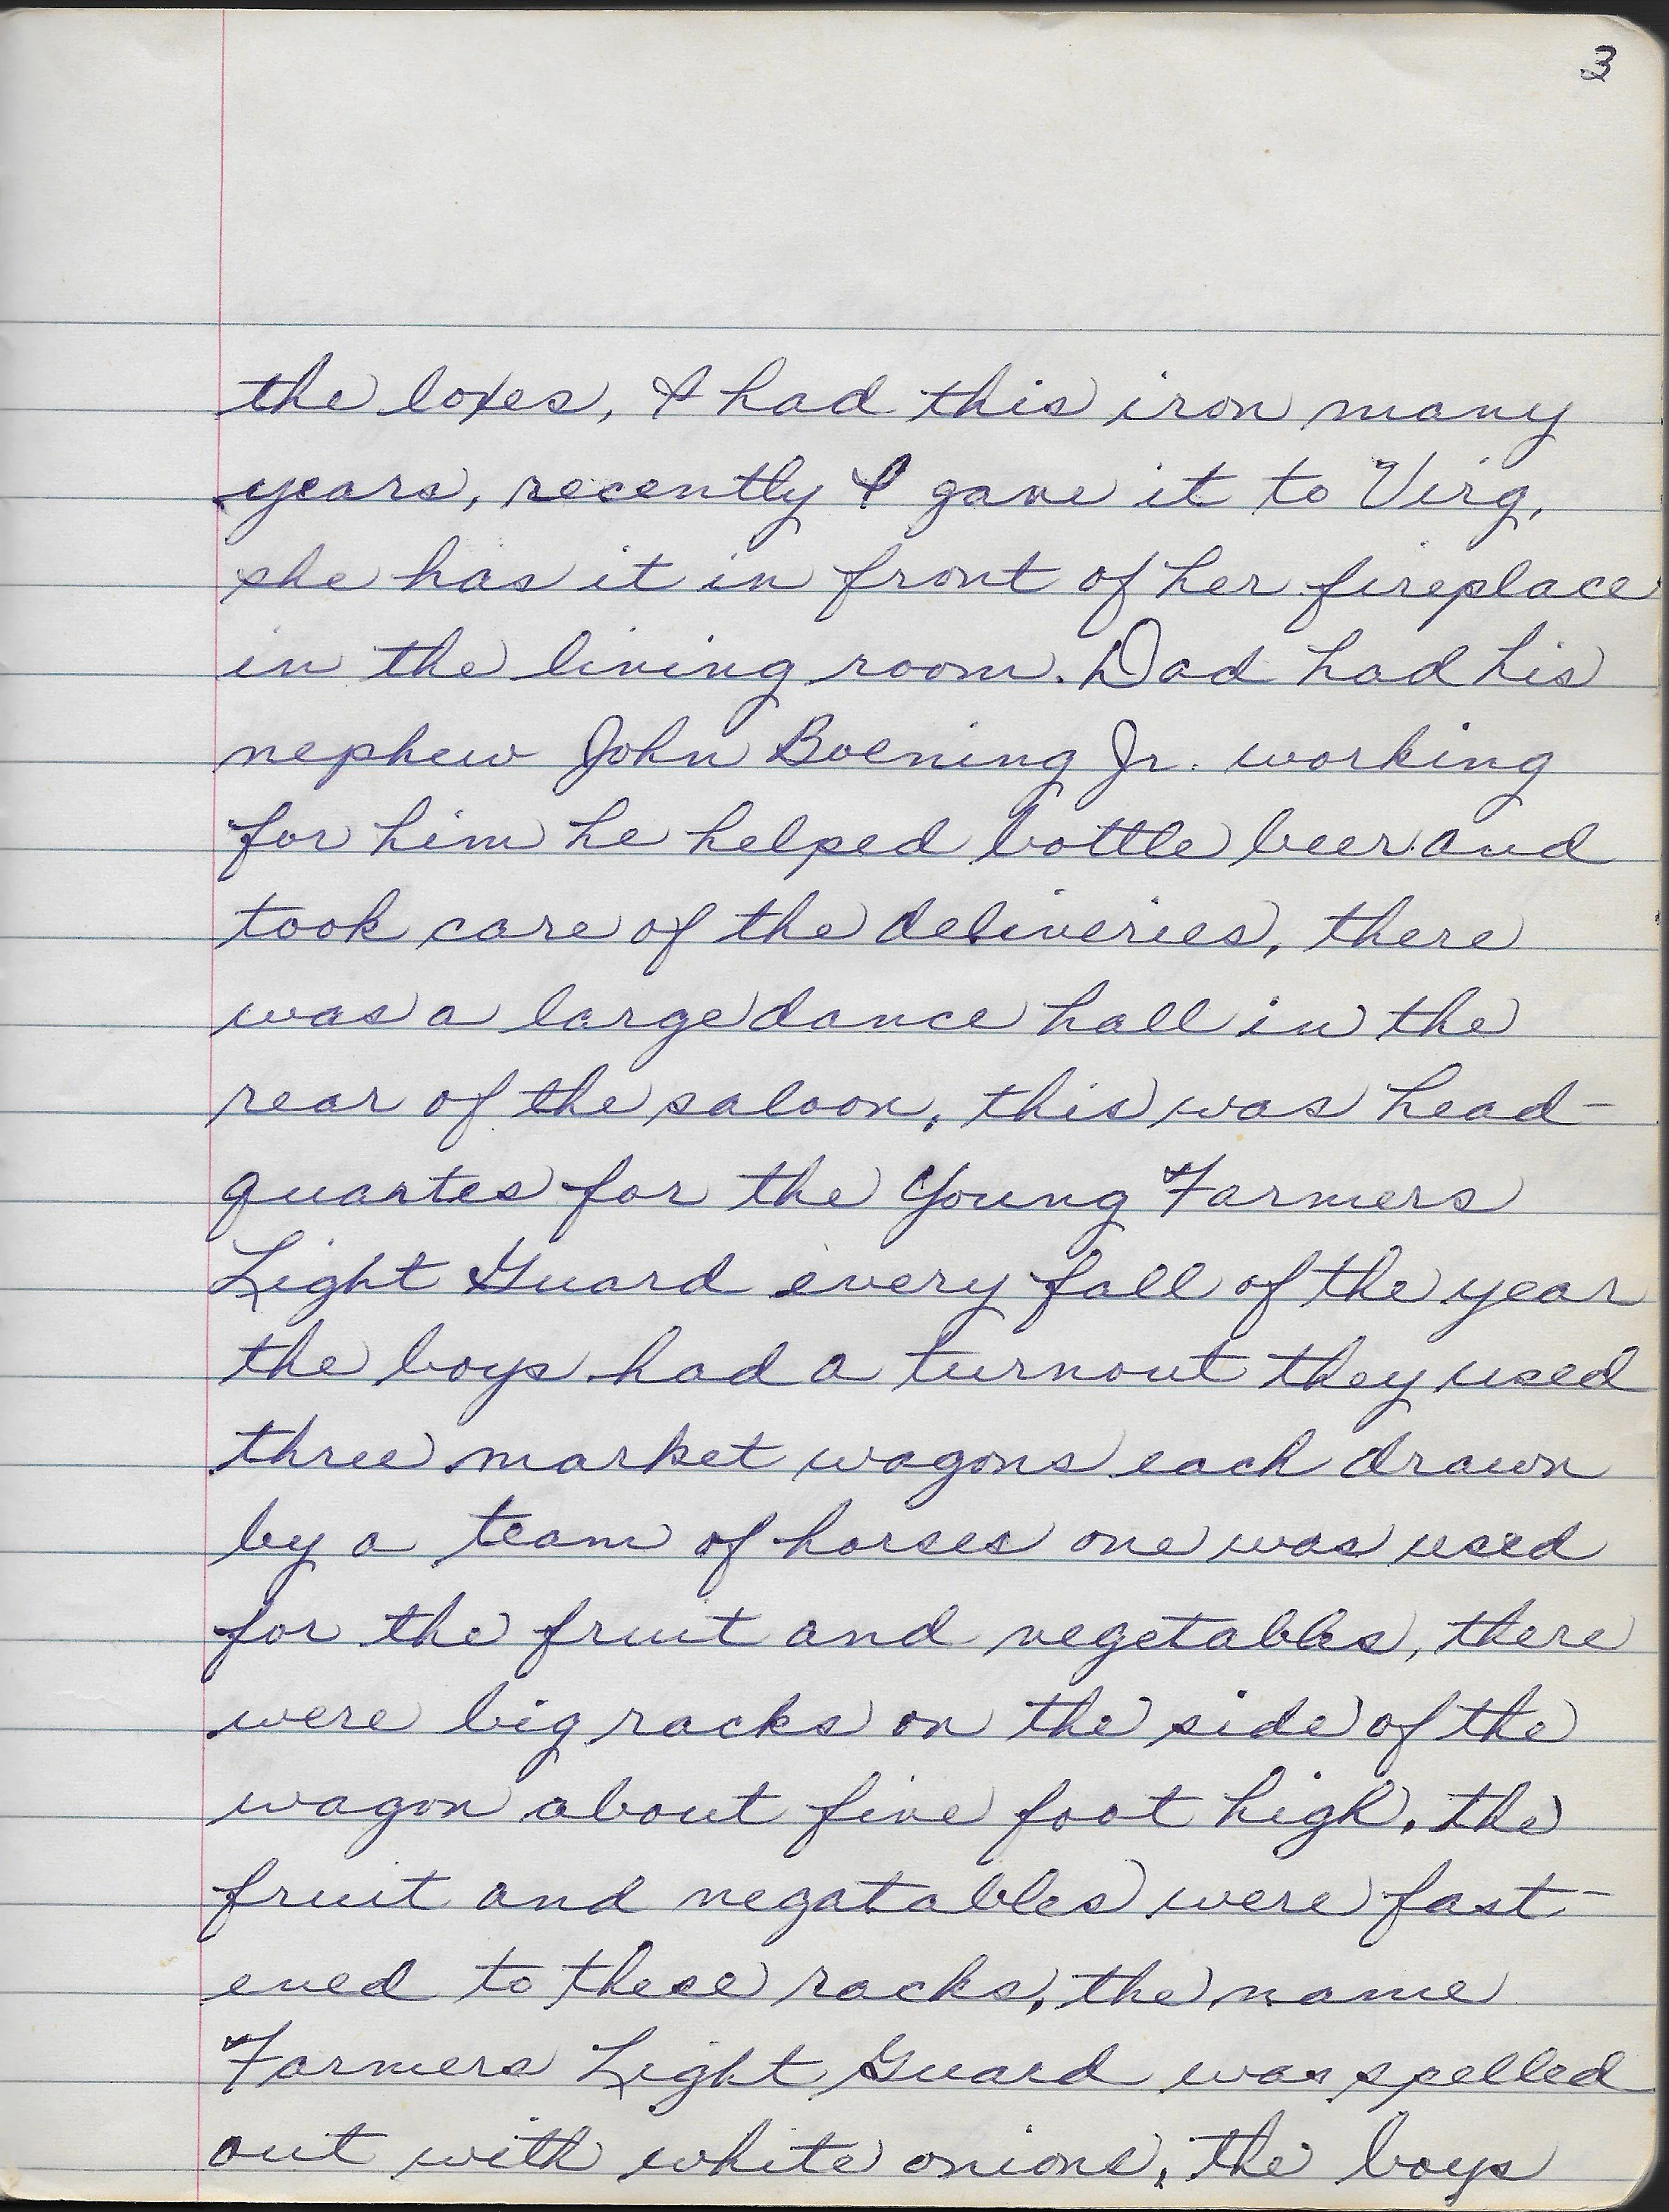 3
the boxes, I had this iron many
years, recently I gave it to Virg,
she has it in front of her fireplace
in the living room. Dad had his
nephew John Boening Jr. working
for him he helped bottle beer and
took care of the deliveries, there
was a large dance hall in the
rear of the saloon, this was head-
quartes for the Young Farmers
Light Guard every fall of the year
the boys had a turnout they used
three market wagons each drawn
by a team of horses one was used
for the fruit and vegetables, there
were big racks on the side of the
wagon about five foot high. the
fruit and vegatables were fast-
ened to these racks, the name
Farmers Light Guard was spelled
out with white onions, the boys